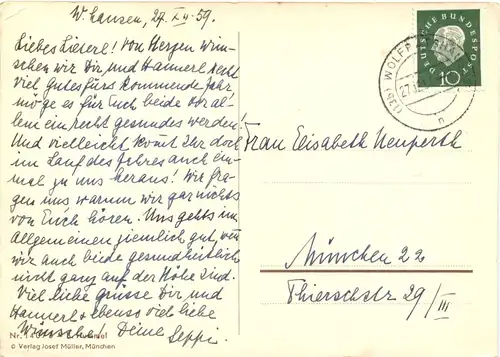 W. hausen, 27. XII. 59.
Liebes Lieserl! Von Herzen wün-
schen wir Dir, und Hannerl recht
viel gutes fürs kommende Jahr,
möge es für Euch beide vor al-
lem ein recht gesundes werden!
Und vielleicht kommt Ihr doch
im Lauf des Jahres auch ein-
mal zu uns heraus! Wir fra-
gen uns warum wir gar nichts
von Euch hören. Uns gehts im
Allgemeinen ziemlich gut, wenn
wir auch beide gesundheitlich
nicht ganz auf der Höhe sind.
Viel liebe Grüsse Dir und
Hannerl + ebenso viel liebe
Wünsche! Deine Seppi.
Nr.
© Verlag Josef Müller, München
DEUTSCHE BUNDESPOST
10
(13b) WOLFR
27.
Frau Elisabeth Neuperth
München 22
Thierschstr. 29/III